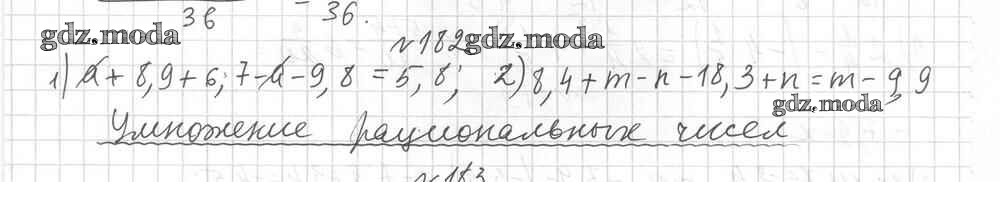 36 36.
gdz.moda № 182 gdz.moda
1) a + 8,9 + 6,7 - a - 9,8 = 5,8; 2) 8,4 + m - n - 18,3 + n = m - 9,9
gdz.moda
Умножение рациональных чисел
№ 183